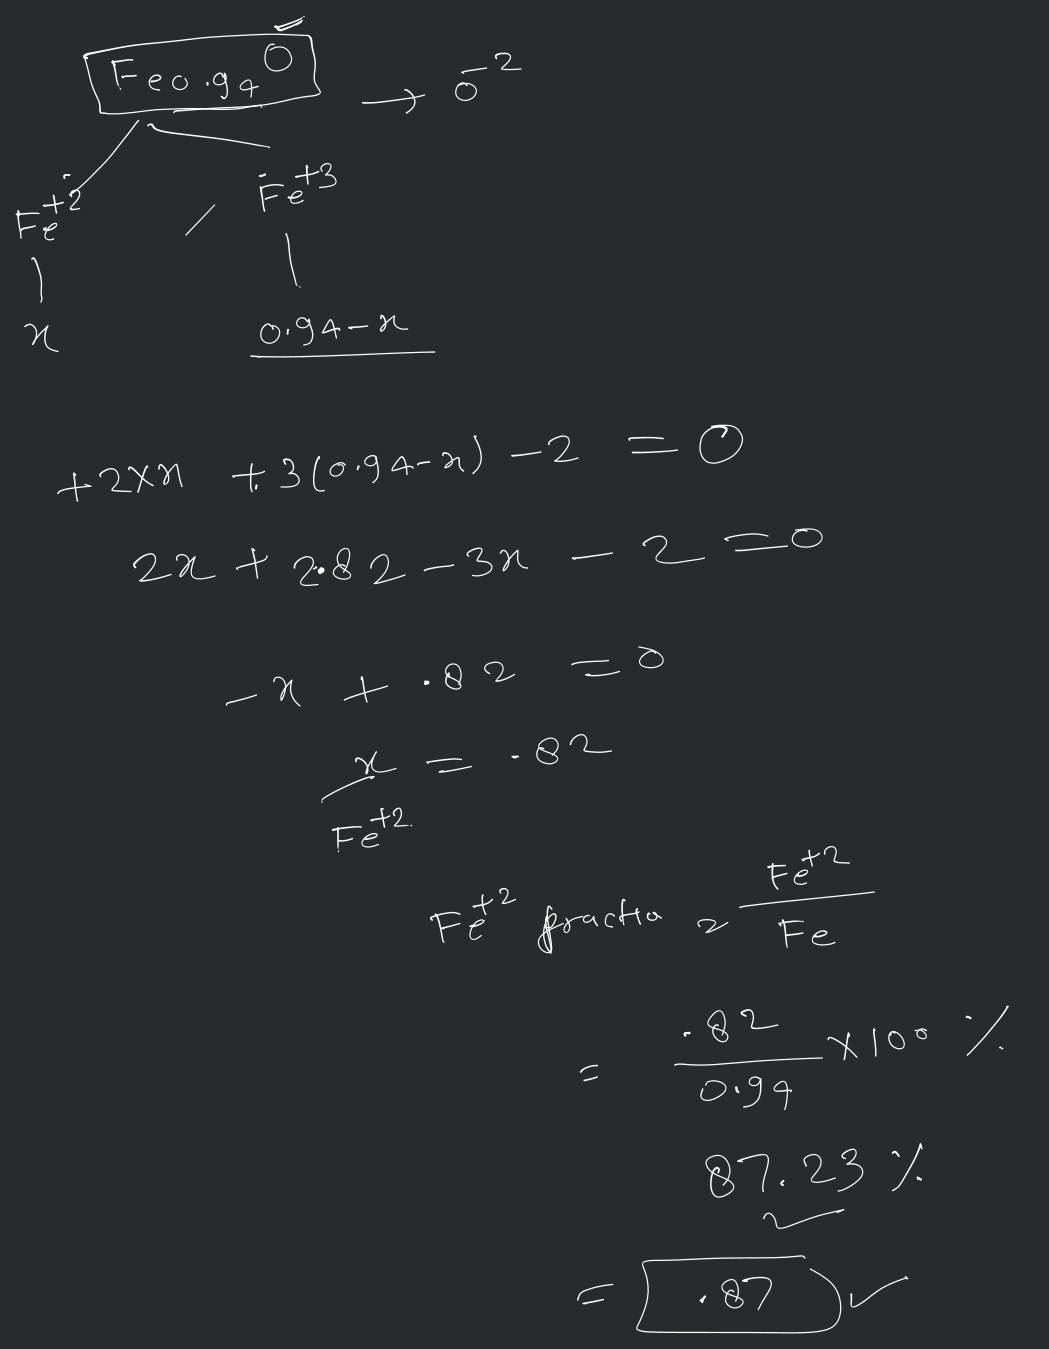 Fe0.94O → O-2
Fe+2 / Fe+3
x 0.94-x
+2×x +3(0.94-x) -2 = 0
2x + 2.82 - 3x - 2 = 0
-x + .82 = 0
x = .82
Fe+2
Fe+2 fractio = Fe+2/Fe
= .82/0.94 ×100 %
87.23 %
= .87